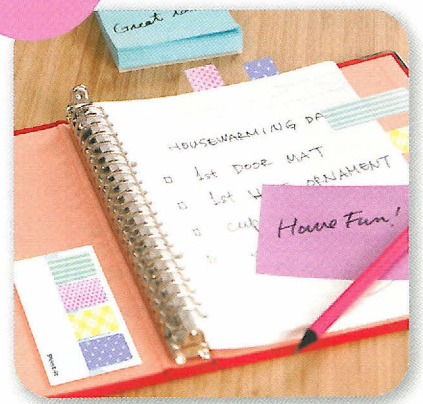 Great
HOUSEWARMING
1st DOOR MAT
1st ORNAMENT
Have Fun!
Post-it